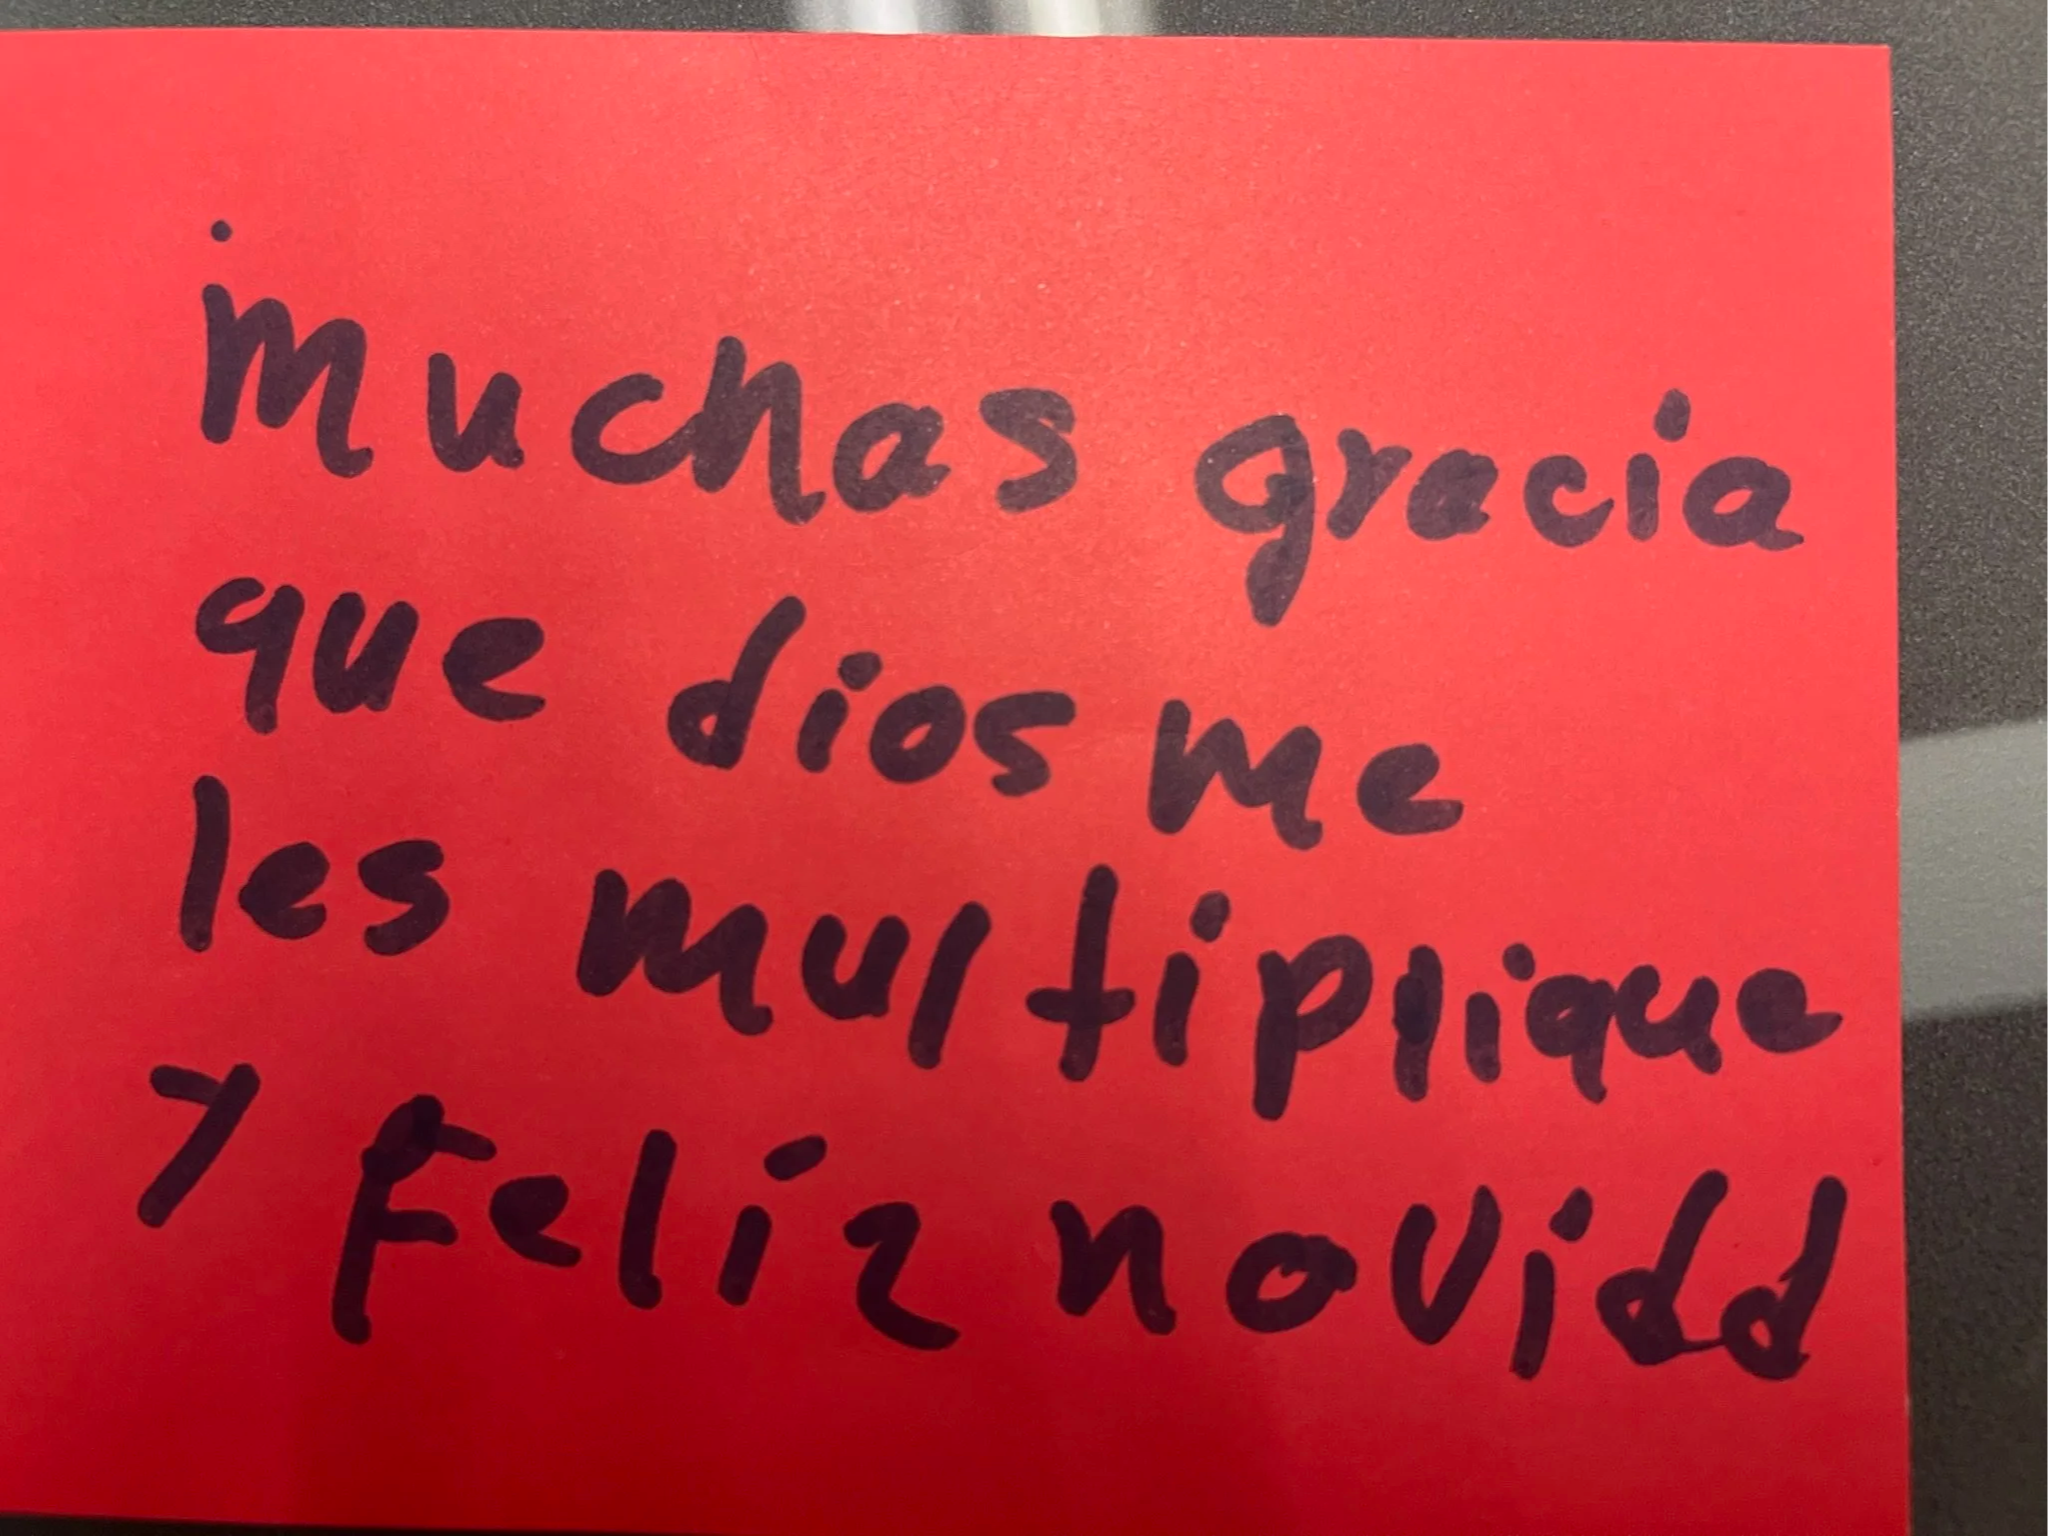 muchas gracia
que dios me
les multiplique
y Feliz navidd